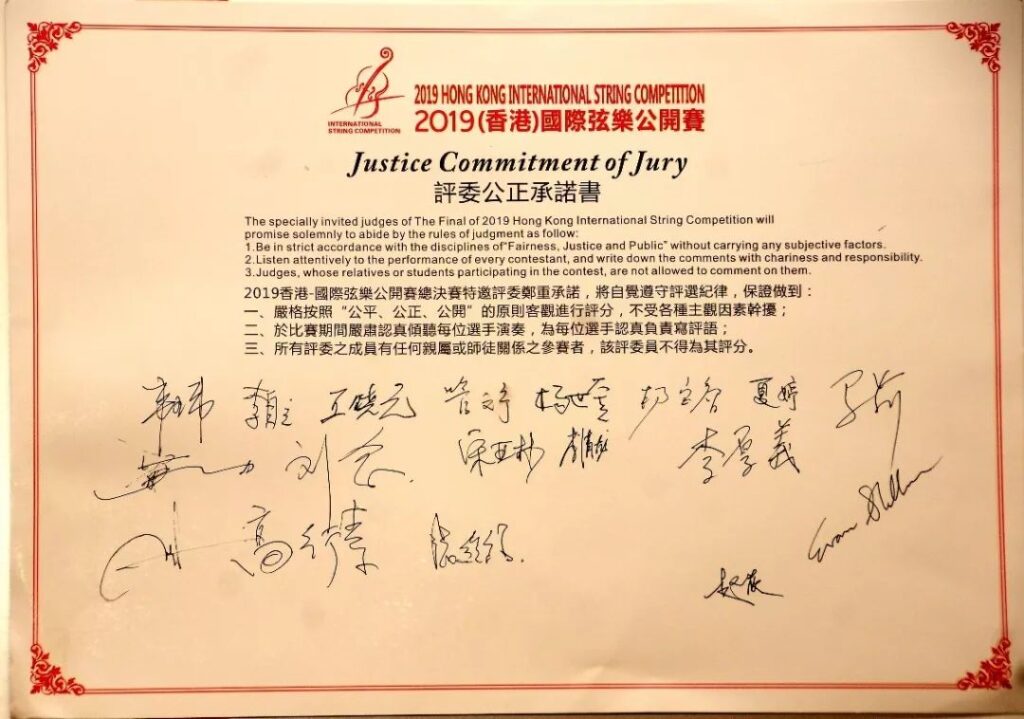 2019 HONG KONG INTERNATIONAL STRING COMPETITION
INTERNATIONAL
STRING COMPETITION
2019(香港)國際弦樂公開賽
Justice Commitment of Jury
評委公正承諾書
The specially invited judges of The Final of 2019 Hong Kong International String Competition will
promise solemnly to abide by the rules of judgment as follow:
1.Be in strict accordance with the disciplines of“Fairness, Justice and Public” without carrying any subjective factors.
2.Listen attentively to the performance of every contestant, and write down the comments with chariness and responsibility.
3.Judges, whose relatives or students participating in the contest, are not allowed to comment on them.
2019香港-國際弦樂公開賽總決賽特邀評委鄭重承諾，將自覺遵守評選紀律，保證做到：
一、嚴格按照“公平、公正、公開”的原則客觀進行評分，不受各種主觀因素幹擾；
二、於比賽期間嚴肅認真傾聽每位選手演奏，為每位選手認真負責寫評語；
三、所有評委之成員有任何親屬或師徒關係之參賽者，該評委員不得為其評分。
王曉元 夏婷
刘 李厚義
高
Evan